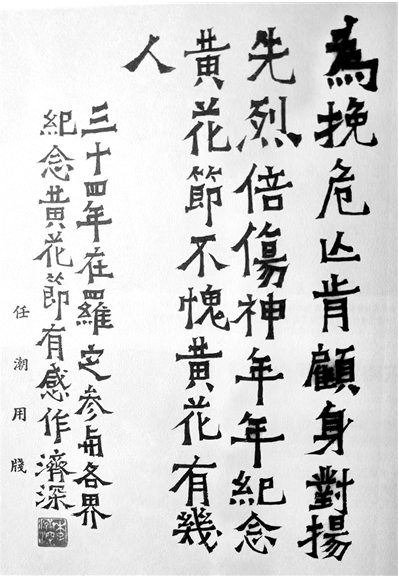 為挽危亾肯顧身對揚
先烈倍傷神年年紀念
黃花節不愧黃花有幾
人
三十四年在羅定參与各界
紀念黃花節有感作濟深
任潮用牋